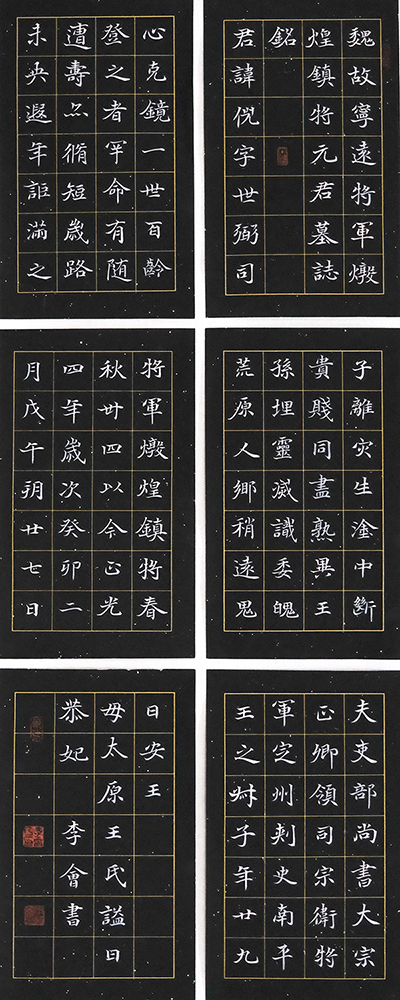 魏故寧遠將軍燉
煌鎮將元君墓誌
銘
君諱倪字世弼司
心克鏡一世百齡
登之者罕命有随
遭壽亦脩短歲路
未央遐年詎滿之
子離灾生塗中斷
貴賤同盡熟異王
孫埋靈滅識委魄
荒原人鄉稍遠鬼
將軍燉煌鎮將春
秋卅四以今正光
四年歲次癸卯二
月戊午朔廿七日
夫吏部尚書大宗
正卿領司宗衛將
軍定州刺史南平
王之叔子年廿九
日安王
母太原王氏謚曰
恭妃 李會書